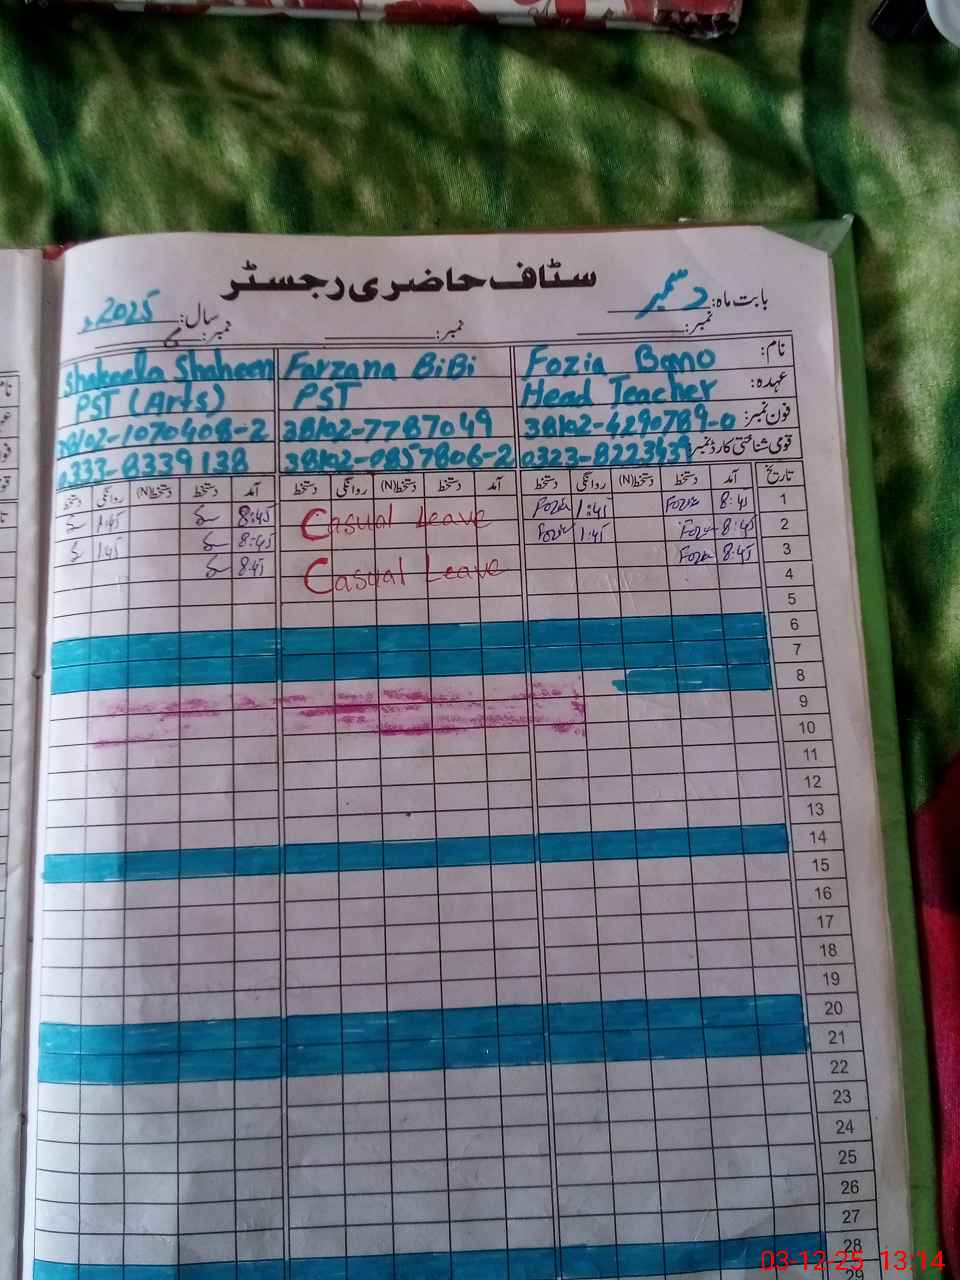 سٹاف حاضری رجسٹر
بابت ماہ: دسمبر
سال: 2025ء
نمبر: نمبر: نمبر:
نام: Fozia Bano Farzana BiBi Shakeela Shaheen
عہدہ: Head Teacher PST PST (Arts)
فون نمبر: 38102-4290789-0 38102-7787049 38102-1070408-2
قومی شناختی کارڈ نمبر 0323-8223459 38102-0857806-2 0333-8339138
تاریخ آمد دستخط دستخط(N) روانگی دستخط آمد دستخط دستخط(N) روانگی دستخط آمد دستخط دستخط(N) روانگی دستخط
1 8:45 Fozia 1:45 Fozia Casual Leave 8:45 1:45
2 8:45 Fozia 1:45 Fozia 8:45 1:45
3 8:45 Fozia Casual Leave 8:45
4
5
6
7
8
9
10
11
12
13
14
15
16
17
18
19
20
21
22
23
24
25
26
27
28
29
03-12-25 13:14